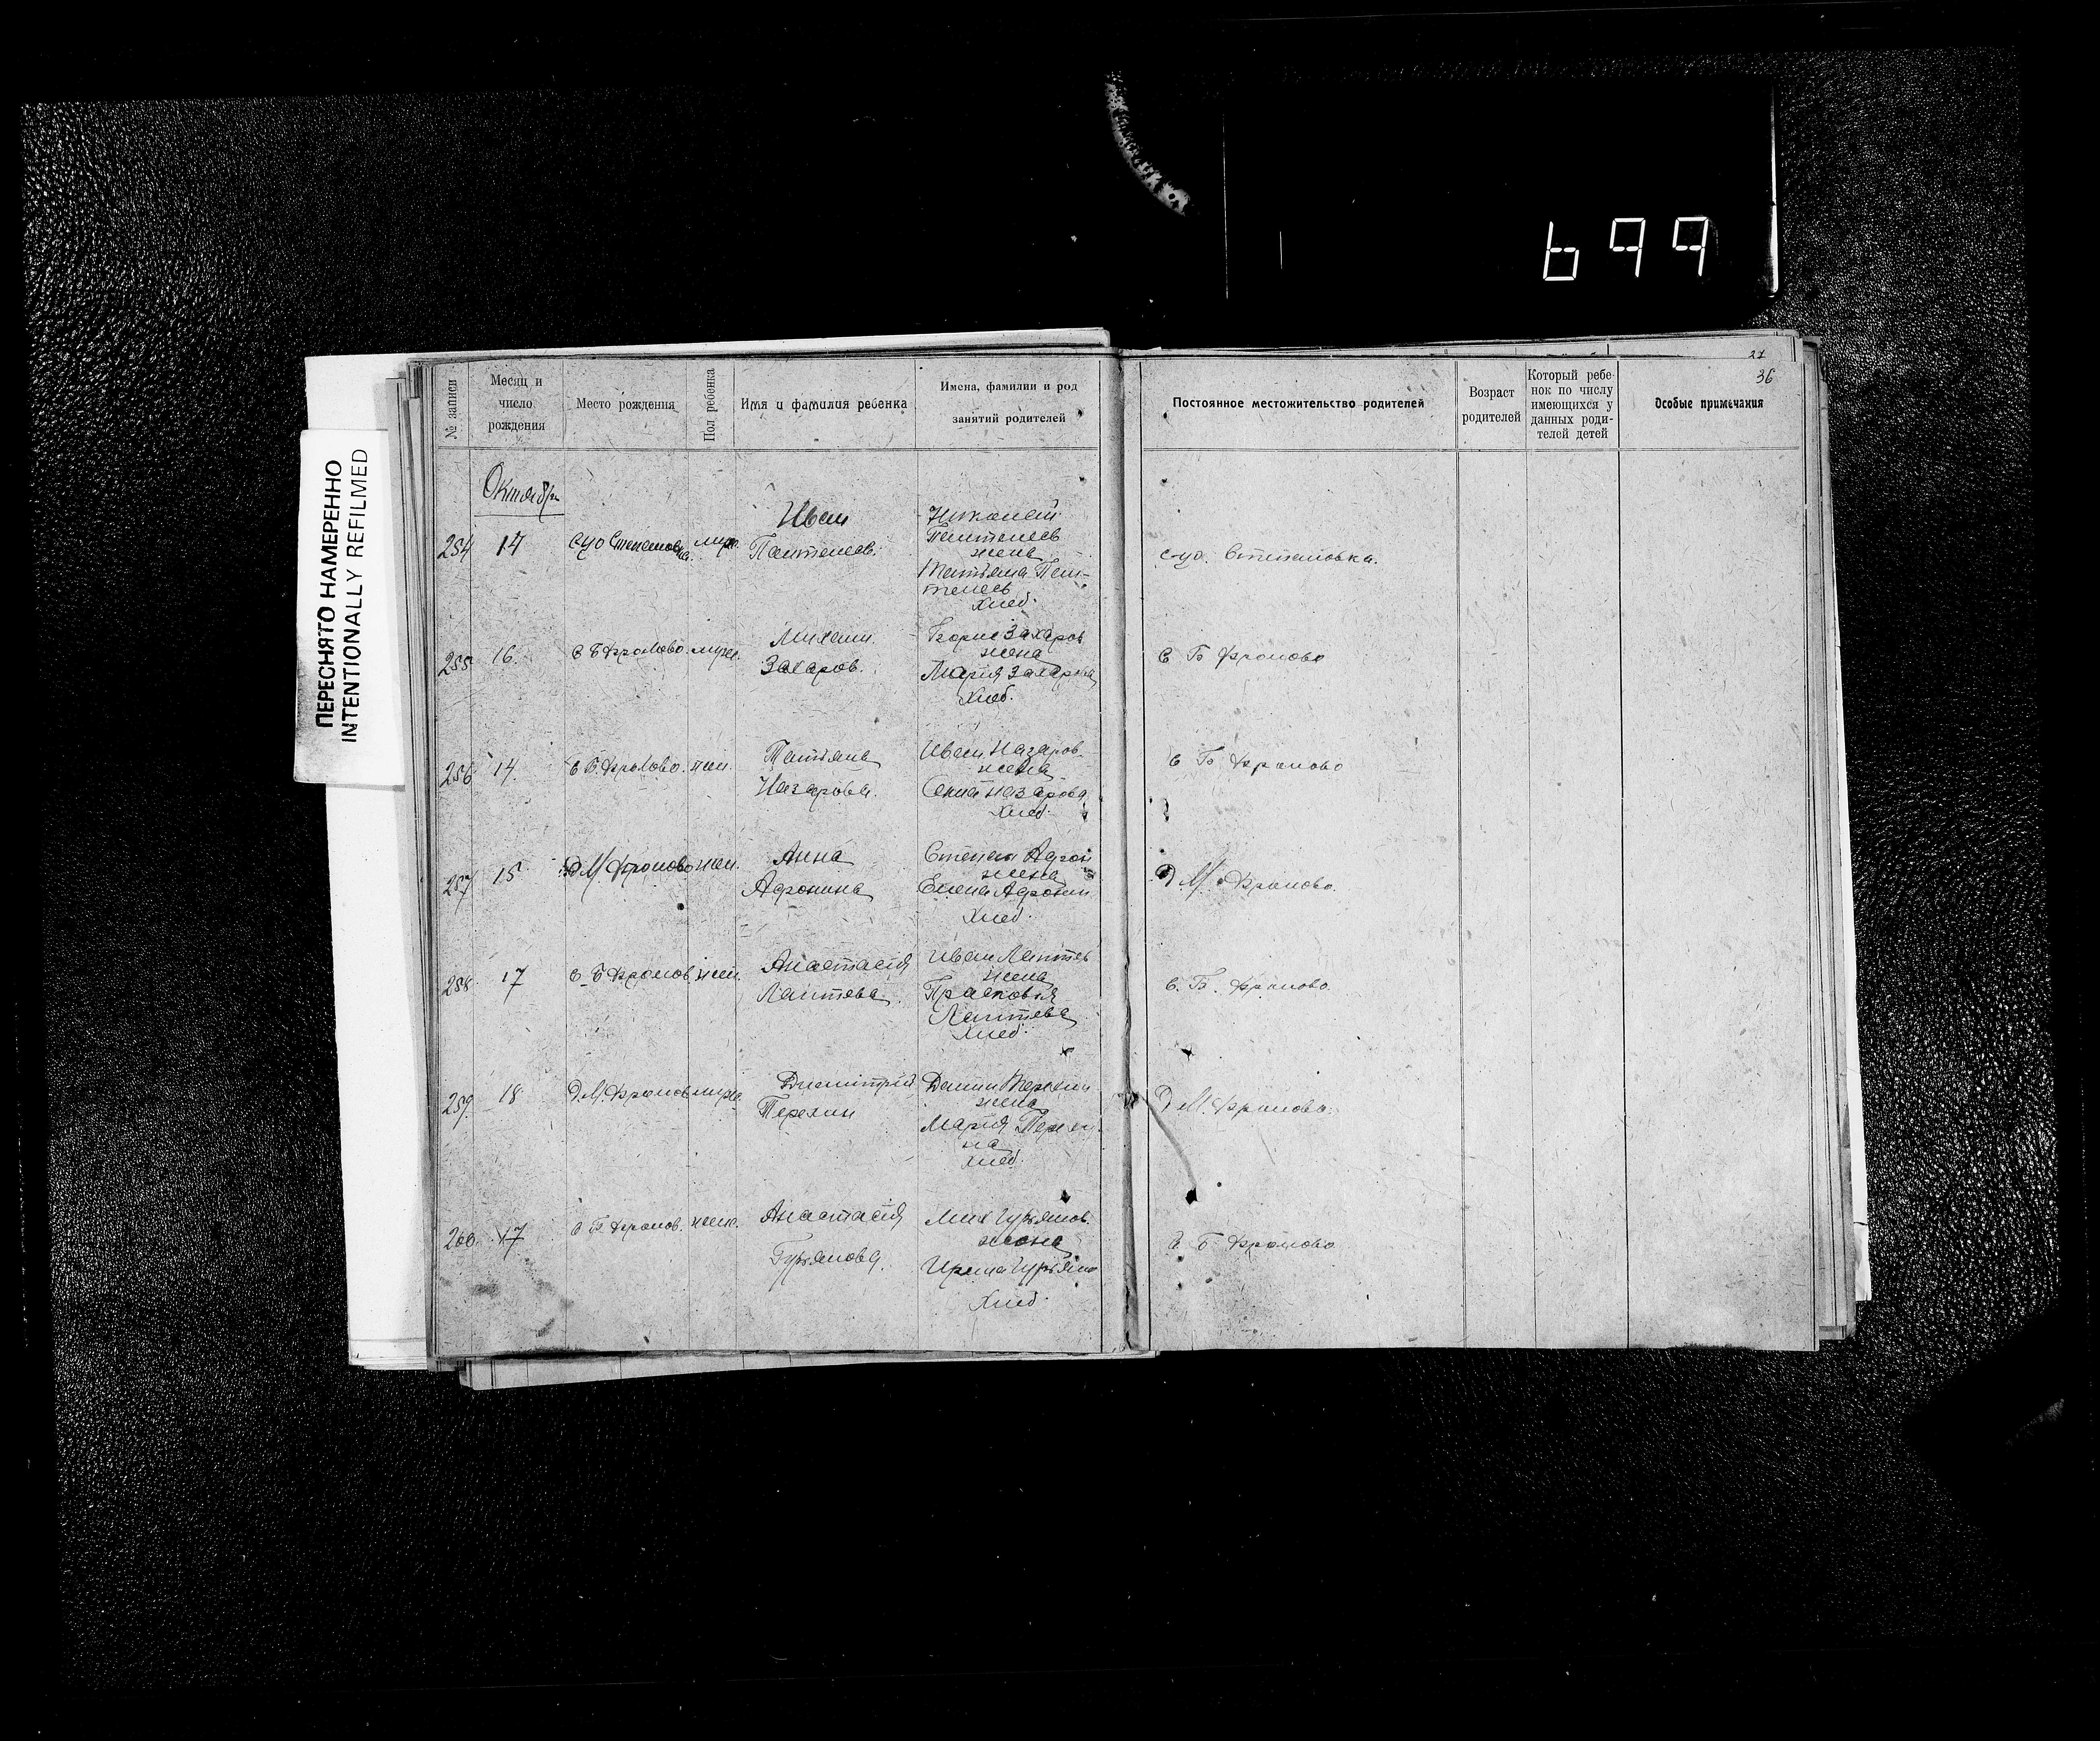 699
ПЕРЕСНЯТО НАМЕРЕННО
INTENTIONALLY REFILMED
27
36
№ записи
Месяц и число рождения
Место рождения
Пол ребенка
Имя и фамилия ребенка
Имена, фамилии и род занятий родителей
Постоянное местожительство родителей
Возраст родителей
Который ребенок по числу имеющихся у данных родителей детей
Особые примечания
Октябрь
254 14 муж. Иван Пантелеев.
Николай
Пантелеев
жена
Татьяна Пан-
телеев
хлеб.
Степановка.
255 16 муж. Михаил
Захаров.
Захаров
жена
Мария Захарова
хлеб.
с Б
256 14 жен. Татьяна
Назарова.
Иван Назаров
жена
Назарова
хлеб
с Б
257 15 Д М жен. Анна
Адронина
Степан Адрон
жена
Елена Адронин
хлеб.
Д М.
258 17 с Б жен. Анастасия
Лаптева.
Иван Лаптев
жена
Прасковья
Лаптева
хлеб.
с. Б.
259 18 Д М. муж Димитрий
Терехин
Терехин
жена
Мария Терехи-
на
хлеб.
Д М.
260 17 с Б жен. Анастасия
Гурьянова.
Мих Гурьянов.
жена
Ирина Гурьяно
хлеб.
с Б